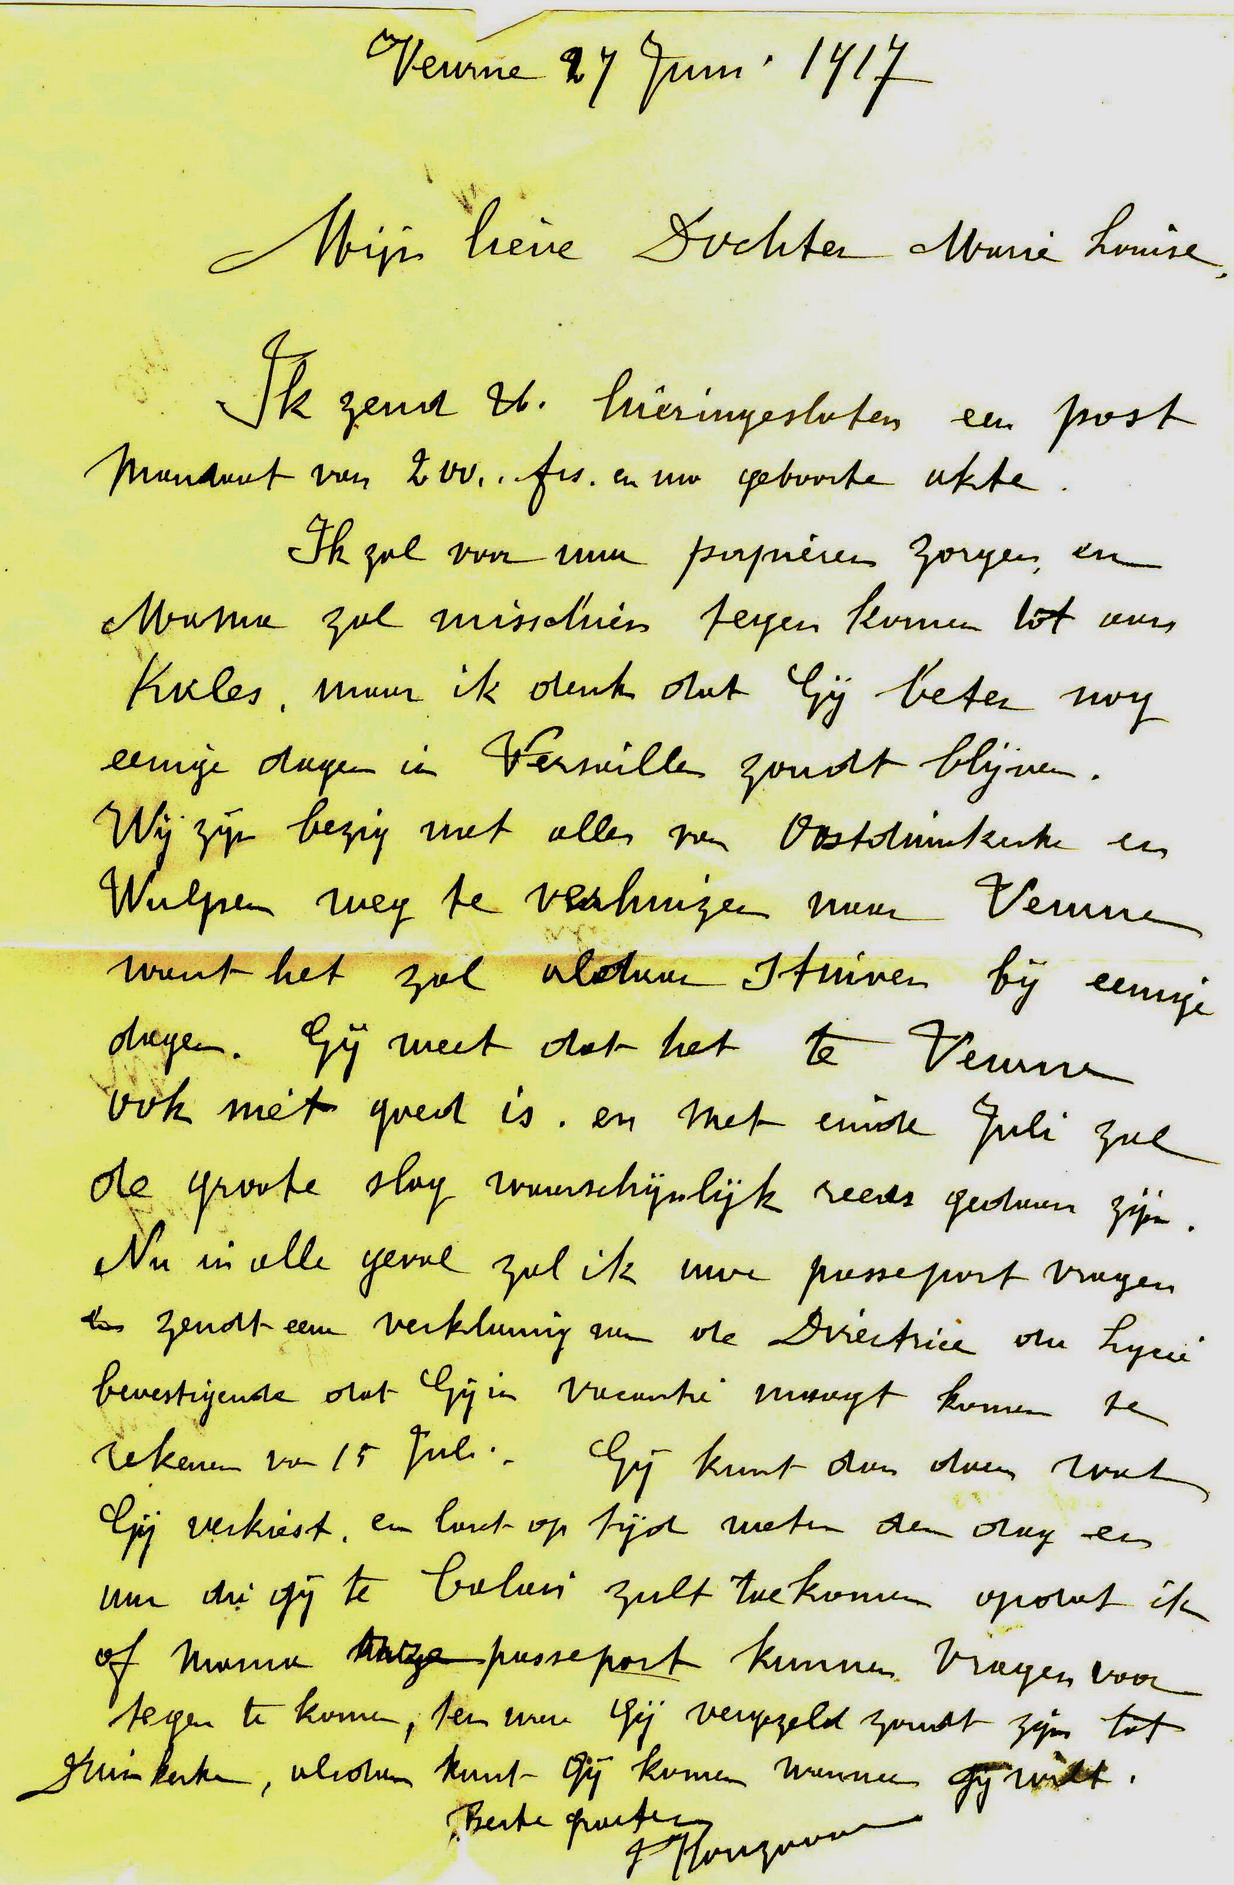 Veurne 27 Juni 1917
Mijn lieve Dochter Marie Louise,
Ik zend U. hieringesloten een post
mandaat van 200.. frs. en uw geboorte akte.
Ik zal voor uwe papieren zorgen, en
Mama zal misschien tegen komen tot aan
Kales, maar ik denk dat Gij beter nog
eenige dagen in Versaille zoudt blijven.
Wij zijn bezig met alles van Oostduinkerke en
Wulpen weg te verhuizen naar Veurne
want het zal aldaar stuiven bij eenige
dagen. Gij weet dat het te Veurne
ook niet goed is. en met einde Juli zal
de groote slag waarschijnlijk reeds gedaan zijn.
Nu in alle geval zal ik uwe passeport vragen
en zendt eene verklaring van de Directrice du Lycée
bevestigende dat Gij in vacantie moogt komen te
rekenen van 15 Juli. Gij kunt dan doen wat
Gij verkiest, en laat op tijd weten den dag en
uur die gij te Calais zult toekomen opdat ik
of Mama passeport kunnen vragen voor
tegen te komen, ten ware Gij vergezeld zoudt zijn tot
Duinkerke, alsdan kunt Gij komen wanneer gij wilt.
Beste groeten